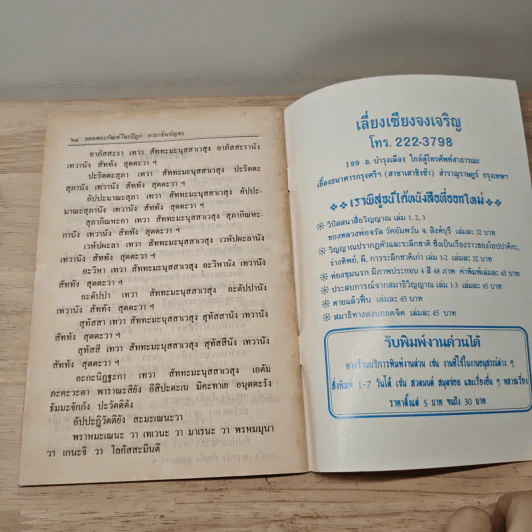 ๖๘ ยอดพระกัณฑ์ไตรปิฎก - คาถาชินบัญชร
อาภัสสะรา เทวา สัททะมะนุสสาเวสุง อาภัสสะรานัง
เทวานัง สัททัง สุตตะวา ฯ
ปะริตตะสุภา เทวา สัททะมะนุสสาเวสุง ปะริตตะ-
สุภานัง เทวานัง สัททัง สุตตะวา ฯ
อัปปะมาณะสุภา เทวา สัททะมะนุสสาเวสุง อัปปะ-
มาณะสุภานัง เทวานัง สัททัง สุตตะวา ฯ
สุภากิณหะกา เทวา สัททะมะนุสสาเวสุง สุภากิณหะ-
กานัง เทวานัง สัททัง สุตตะวา ฯ
เวหัปผะลา เทวา สัททะมะนุสสาเวสุง เวหัปผะลานัง
เทวานัง สัททัง สุตตะวา ฯ
อะวิหา เทวา สัททะมะนุสสาเวสุง อะวิหานัง เทวานัง
สัททัง สุตตะวา ฯ
อะตัปปา เทวา สัททะมะนุสสาเวสุง อะตัปปานัง
เทวานัง สัททัง สุตตะวา ฯ
สุทัสสา เทวา สัททะมะนุสสาเวสุง สุทัสสานัง เทวานัง
สัททัง สุตตะวา ฯ
สุทัสสี เทวา สัททะมะนุสสาเวสุง สุทัสสีนัง เทวานัง
สัททัง สุตตะวา ฯ
อะกะนิฏฐะกา เทวา สัททะมะนุสสาเวสุง เอตัม
ภะคะวะตา พาราณะสิยัง อิสิปะตะเน มิคะทาเย อนุตตะรัง
ธัมมะจักกัง ปะวัตติตัง
อัปปะฏิวัตติยัง สะมะเณนะวา
พราหมะเณนะ วา เทเวนะ วา มาเรนะ วา พรหมมุนา
วา เกนะจิ วา โลกัสสะมินติ
เลี่ยงเซียงจงเจริญ
โทร. 222-3798
199 ถ. บำรุงเมือง ใกล้ตู้โทรศัพท์สาธารณะ
เยื้องธนาคารกรุงศรีฯ (สาขาเสาชิงช้า) สำราญราษฎร์ กรุงเทพฯ
เราพิสูจน์ได้หนังสือที่ออกใหม่
วิปัสสนาสื่อวิญญาณ เล่ม 1, 2, 3
ของหลวงพ่อจรัล วัดอัมพวัน จ. สิงห์บุรี เล่มละ 32 บาท
วิญญาณปรากฏตัวและระลึกชาติ ซึ่งเป็นเรื่องราวของโอปปาติกะ,
ร่างทิพย์, ผี, การระลึกชาติเก่า เล่ม 1-2 เล่มละ 32 บาท
ท่องขุมนรก มีภาพประกอบ 4 สี 48 ภาพ ค่าพิมพ์เล่มละ 65 บาท
ประสบการณ์จากสมาธิวิญญาณ เล่ม 1-3 เล่มละ 45 บาท
ตายแล้วฟื้น เล่มละ 45 บาท
สมาธิทางสงบถอดจิต เล่มละ 45 บาท
รับพิมพ์งานด่วนได้
ทางร้านบริการพิมพ์งานด่วน เช่น งานที่ใช้ในงานอนุสรณ์ต่าง ๆ
สั่งพิมพ์ 1-7 วันได้ เช่น สวดมนต์ สมุดข่อย และเรื่องอื่น ๆ หลายเรื่อง
ราคาตั้งแต่ 5 บาท จนถึง 30 บาท